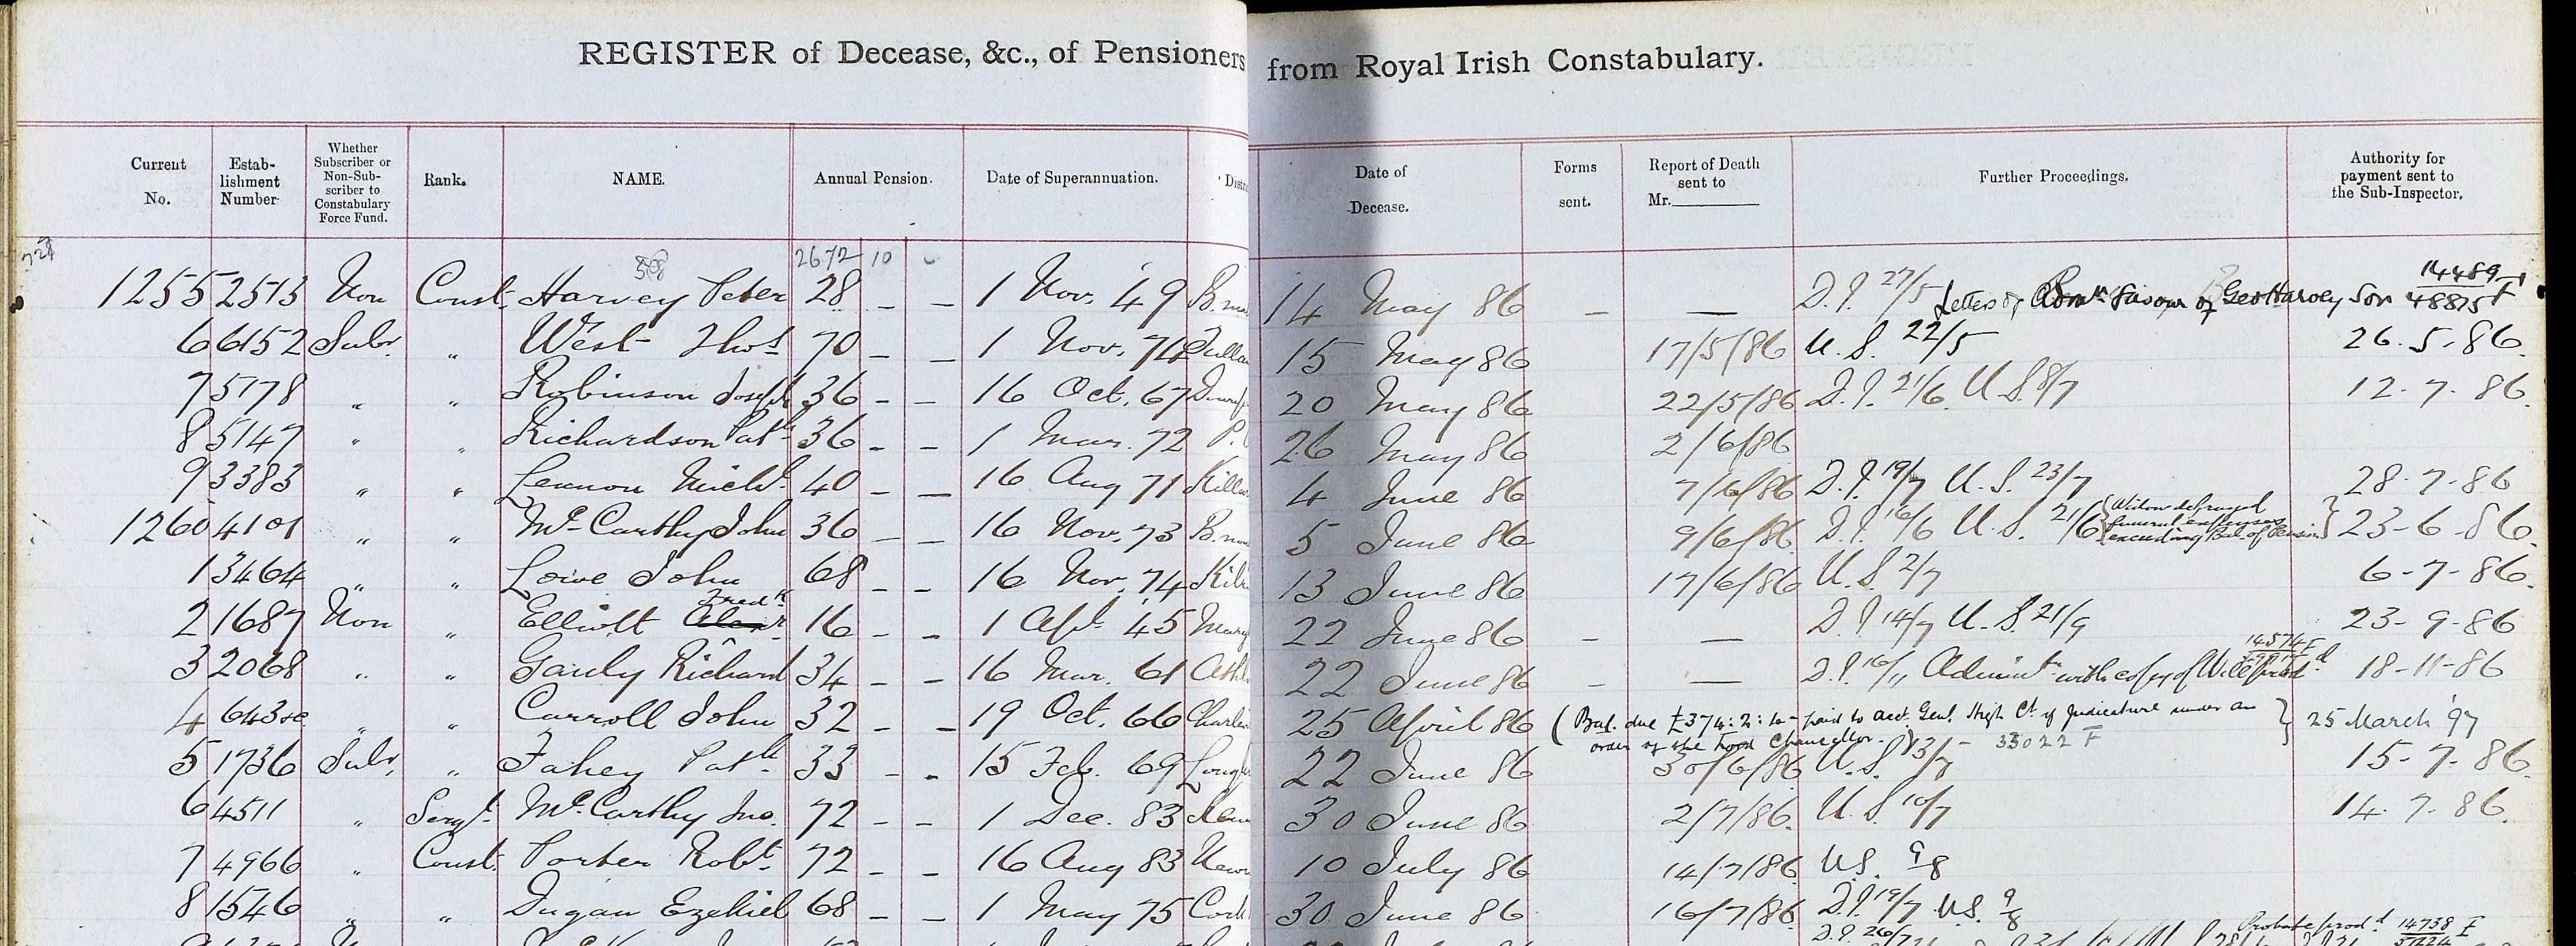 REGISTER of Decease, &c., of Pensioners from Royal Irish Constabulary.
Current No. Estab-lishment Number Whether Subscriber or Non-Sub-scriber to Constabulary Force Fund. Rank. NAME. Annual Pension. Date of Superannuation. Date of Decease. Forms sent. Report of Death sent to Mr. Further Proceedings. Authority for payment sent to the Sub-Inspector.
2672 10
14489
1255 2513 Non Const. Harvey Peter 28 – – 1 Nov. 49 14 May 86 – — D.P. 27/5 Letters of Favour of Geo Harvey Son 48815 F
6 6152 Subr. " West Thos 70 – – 1 Nov. 74 15 May 86 17/5/86 U.S. 22/5 26.5.86.
7 5778 " " Robinson Joseph 36 – – 16 Oct. 67 20 May 86 22/5/86 D.P. 21/6 U.S. 8/7 12-7-86.
8 5147 " " Richardson Patk 36 – – 1 Mar. 72 26 May 86 2/6/86
9 3383 " " Lennon Michl 40 – – 16 Aug 71 4 June 86 7/6/86 D.P. 19/7 U.S. 23/7 28-7-86
1260 4101 " " McCarthy John 36 – – 16 Nov. 73 5 June 86 9/6/86 D.P. 16/6 U.S. 21/6 { Widow defrayed funeral expenses exceeding Bal. of Pension } 23-6-86.
1 3464 " " Lowe John 68 – – 16 Nov. 74 13 June 86 17/6/86 U.S. 2/7 6-7-86.
2 1687 Non " Elliott Fredk 16 – – 1 Apl. 45 22 June 86 – — D.P. 14/7 U.S. 21/9 23-9-86
14574 F
3 2068 " " Gauly Richard 34 – – 16 Mar. 61 22 June 86 – — D.P. 16/11 Adminn with copy of Will prodd 18-11-86
4 643 " " Carroll John 32 – – 19 Oct. 66 25 April 86 ( Bal. due £374:2: paid to acct. Genl. High Ct. of Judicature under an } 25 March '97
order of the Lord Chancellor.) 33022 F
5 1736 Subr. " Fahey Patk 33 – – 15 Feb. 69 22 June 86 30/6/86 U.S. 13/7 15-7-86.
6 4511 " Sergt. McCarthy Jno. 72 – – 1 Dec. 83 30 June 86 2/7/86. U.S. 10/7 14.7.86.
7 4966 " Const. Porter Robt. 72 – – 16 Aug 83 10 July 86 14/7/86. U.S. 9/8
8 1546 " " Dugan Ezekiel 68 – – 1 May 75 Cork 30 June 86 16/7/86. D.P. 19/7 U.S. 9/8
D.P. 26/7 Probate prod.d 14738 F